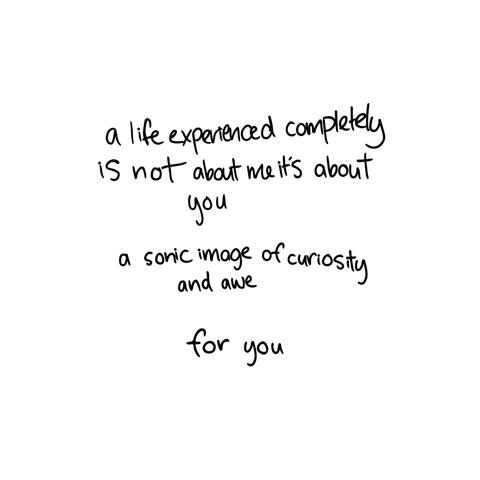 a life experienced completely
is not about me it's about
you
a sonic image of curiosity
and awe
for you